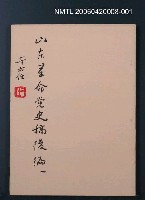 NMTL 20060420008-001
山东革命党史稿後编一